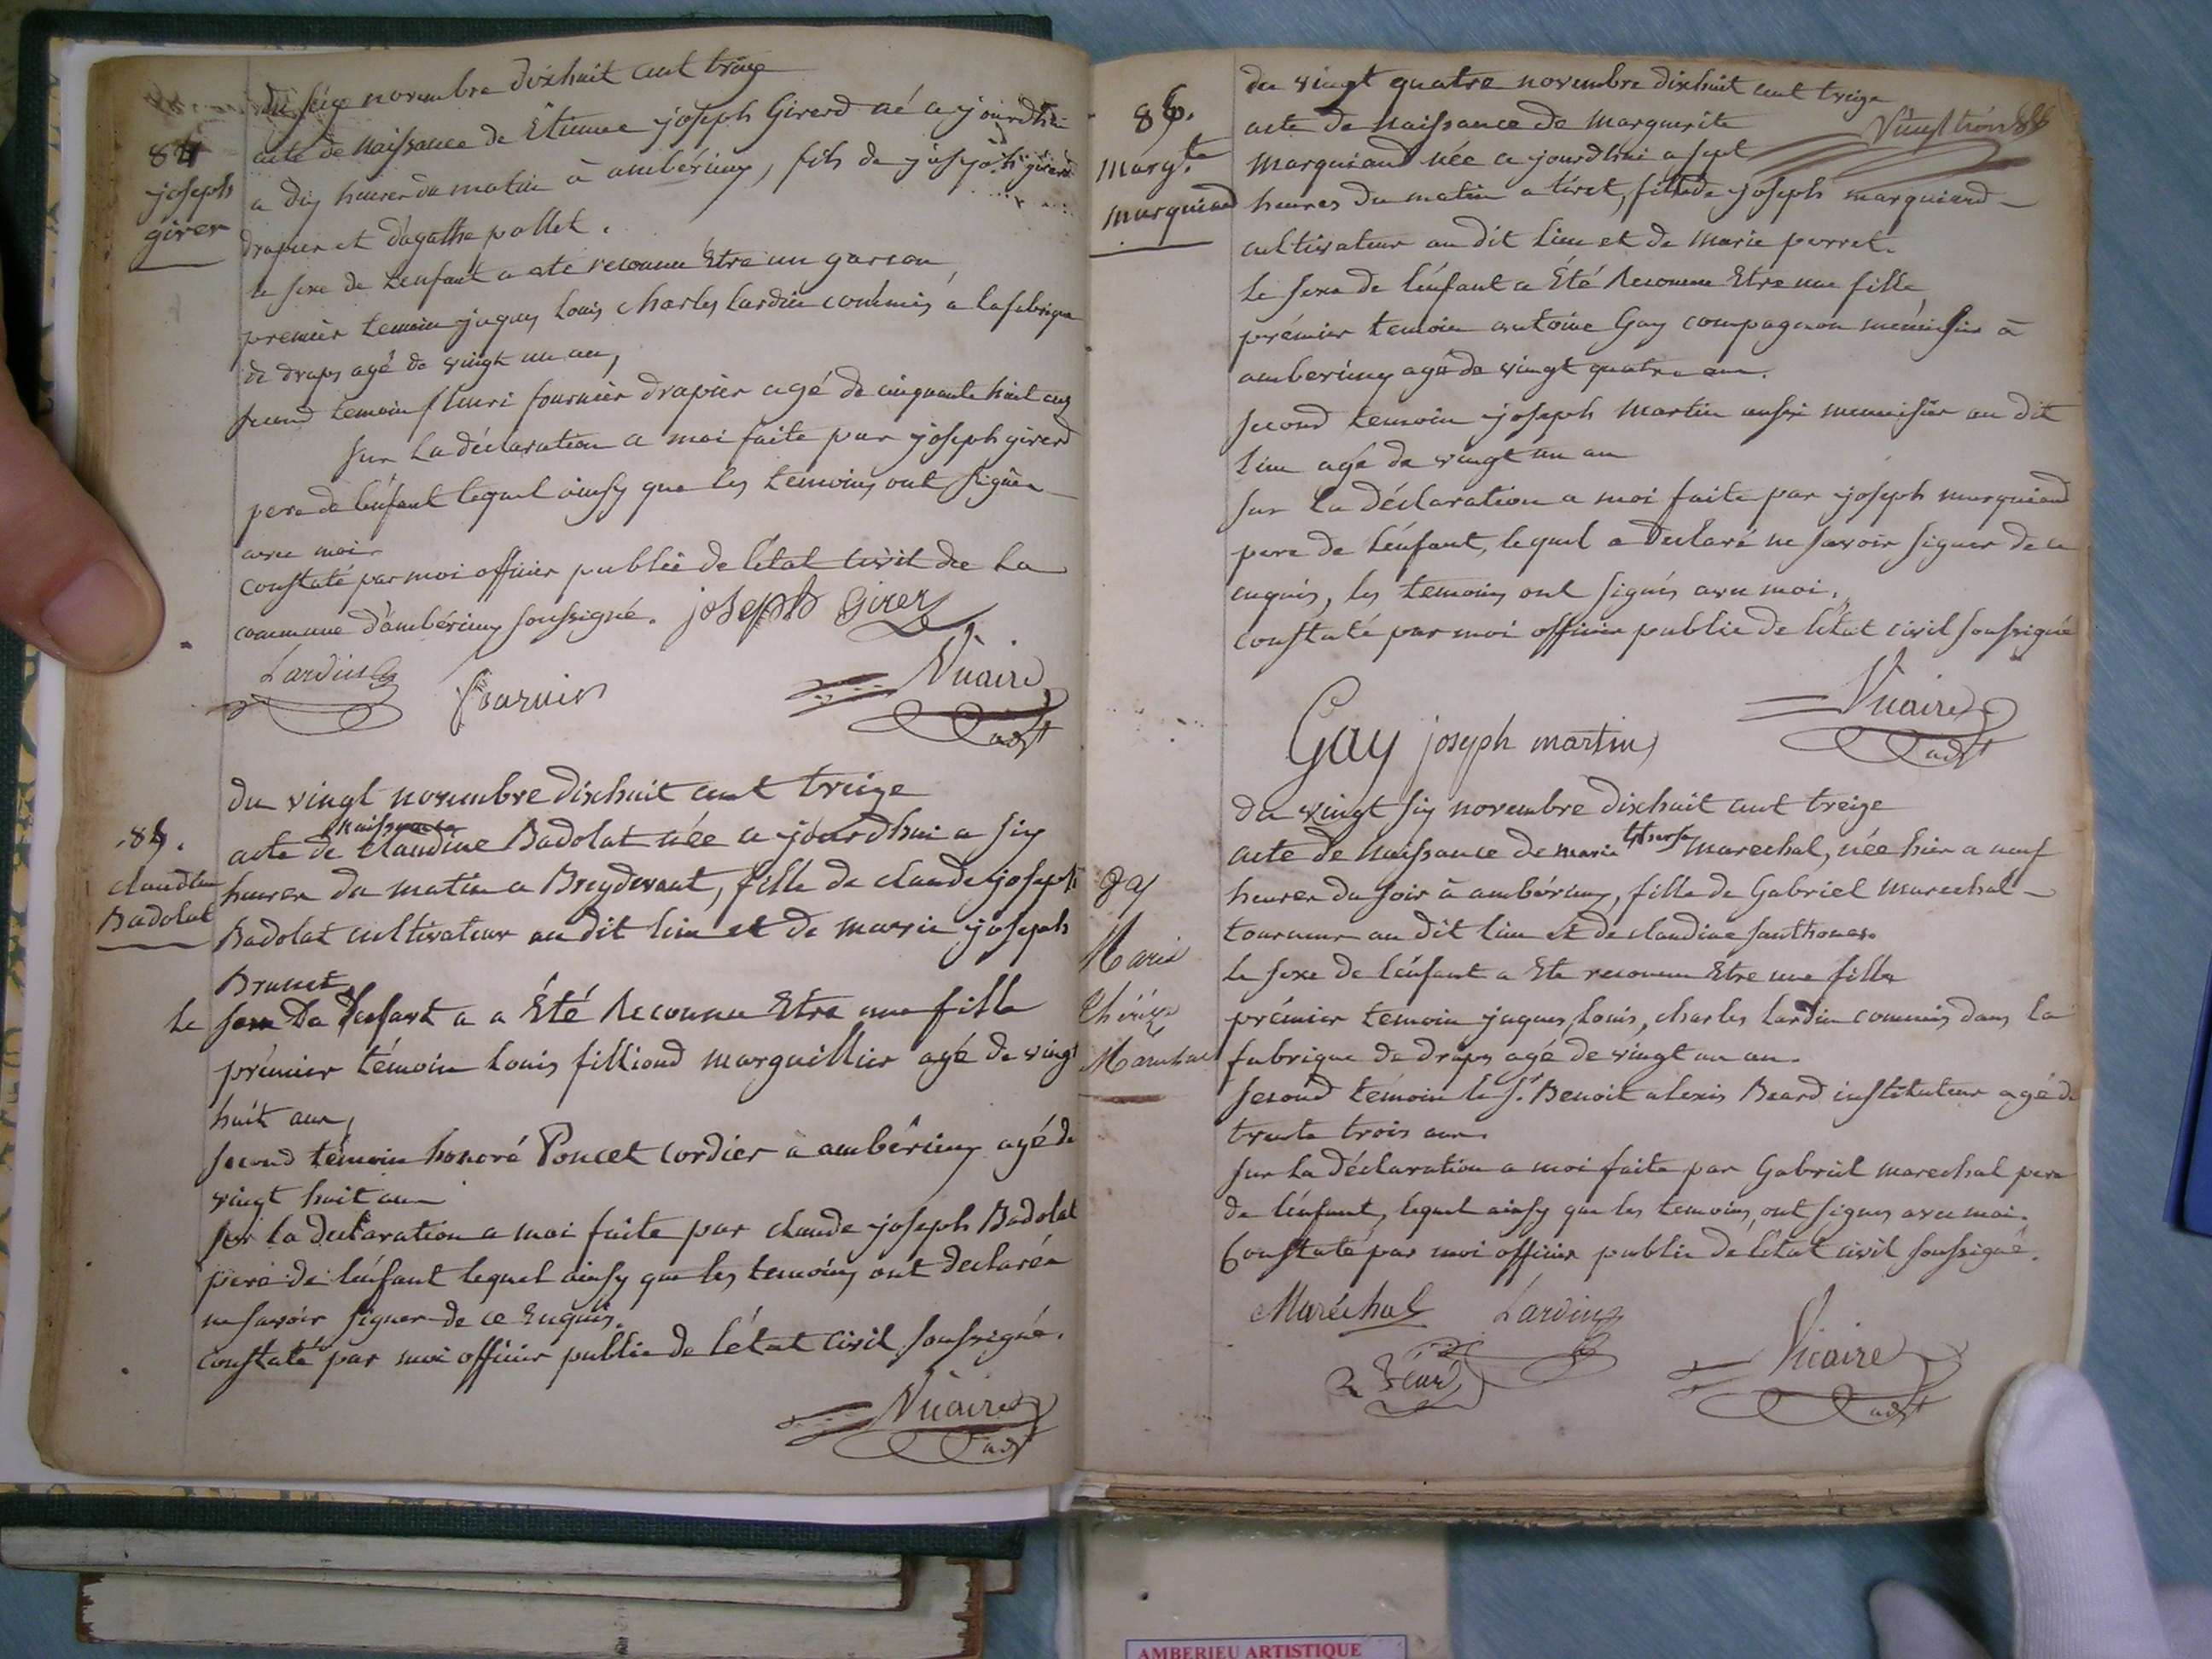 du seize novembre dixhuit cent treize
84
joseph
girer
acte de naissance de Etienne joseph Girerd né ce jourdhui
a dix heures du matin à ambérieux, fils de joseph girerd
drapier et d'agathe pollet.
le sexe de l'enfant a ete reconnu Etre un garcon,
premier temoin jaques Louis Charles Lardin commis a la fabrique
de draps agé de vingt un an,
second temoin fleuri fournier drapier agé de cinquante huit ans
sur la déclaration a moi faite par joseph girerd
pere de l'énfant lequel ainsy que les temoins ont signés
avec moi.
constaté par moi officier public de l'état civil de la
commune d'ambérieux soussigné. joseph Girer
Lardin fournier Vicaire
adjt
du vingt novembre dixhuit cent treize
85.
claudine
Badolat
naissance
acte de claudine Badolat née ce jourdhui a six
heures du matin a Breydevant, fille de claude joseph
Badolat cultivateur au dit lieu et de marie joseph
Brunet
le sexe De l'enfant a a Été Reconnu Etre une fille
prémier témoin Louis filliond marguillier agé de vingt
huit ans,
second témoin honoré Poncet cordier à ambérieux agé de
vingt huit ans
sur la declaration a moi faite par claude joseph Badolat
pere de l'énfant lequel ainsy que les temoins ont declarés
ne savoir signer de ce Enquis.
constaté par moi officier public de l'état civil soussigné.
Vicaire
adjt
du vingt quatre novembre dixhuit cent treize
86.
Marg.te
marquiand
acte de naissance de marguerite
marquiand née ce jourdhui a sept
heures du matin a tiret, fille de joseph marquiand
cultivateur au dit lieu et de marie perret.
le sexe de l'énfant a Été Reconnu Etre une fille,
prémier temoin antoine Gay compagnon ménuisier à
amberieux agé de vingt quatre ans.
second temoin joseph martin aussi menuisier au dit
lieu agé de vingt un an
sur la déclaration a moi faite par joseph marquiand
pere de l'énfant, lequel a declaré ne savoir signer de ce
enquis, les temoins ont signés avec moi.
constaté par moi officier public de l'état civil soussigné
Gay joseph martin Vicaire
adjt
du vingt six novembre dixhuit cent treize
87
Marie
Thérèze
Marechal
acte de naissance de marie therese marechal, née hier a neuf
heures du soir à ambérieux, fille de Gabriel marechal
tourneur au dit lieu et de claudine santhonax.
le sexe de l'énfant a Ete reconnu Etre une fille
prémier temoin jaques, louis, charles lardin commis dans la
fabrique de draps agé de vingt un an.
second témoin le S.r Benoit alexis Beard instituteur agé de
trente trois ans.
sur la déclaration a moi faite par Gabriel marechal pere
de l'énfant, lequel ainsy que les temoins, ont signés avec moi.
Constaté par moi officier public de l'état civil soussigné.
Maréchal Lardin
Béard Vicaire
adjt
AMBERIEU ARTISTIQUE